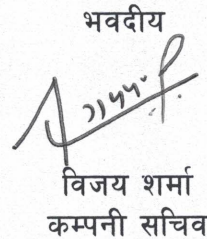 भवदीय
विजय शर्मा
कम्पनी सचिव